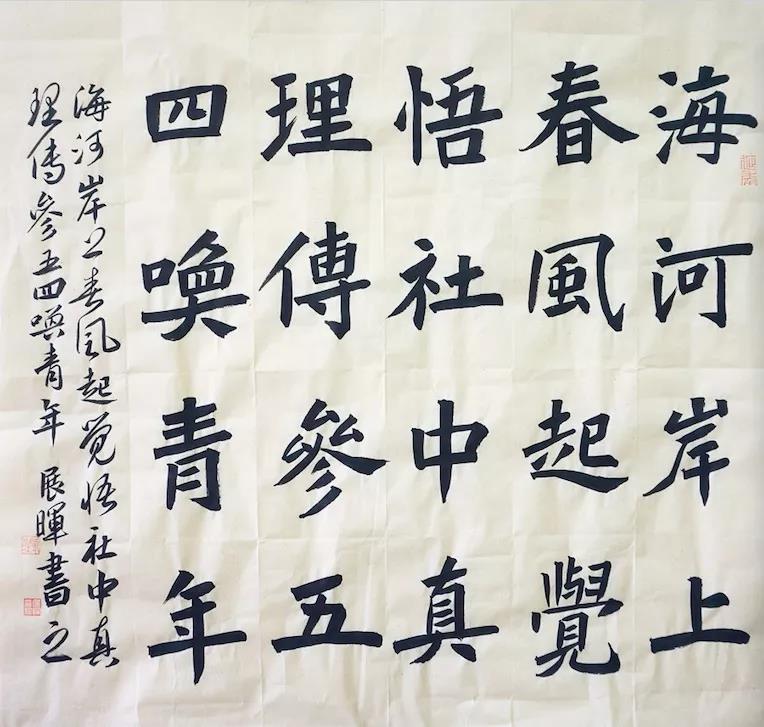 海河岸上
春風起覺
悟社中真
理傳參五
四喚青年
海河岸上春風起覺悟社中真
理傳參五四喚青年 展暉書之